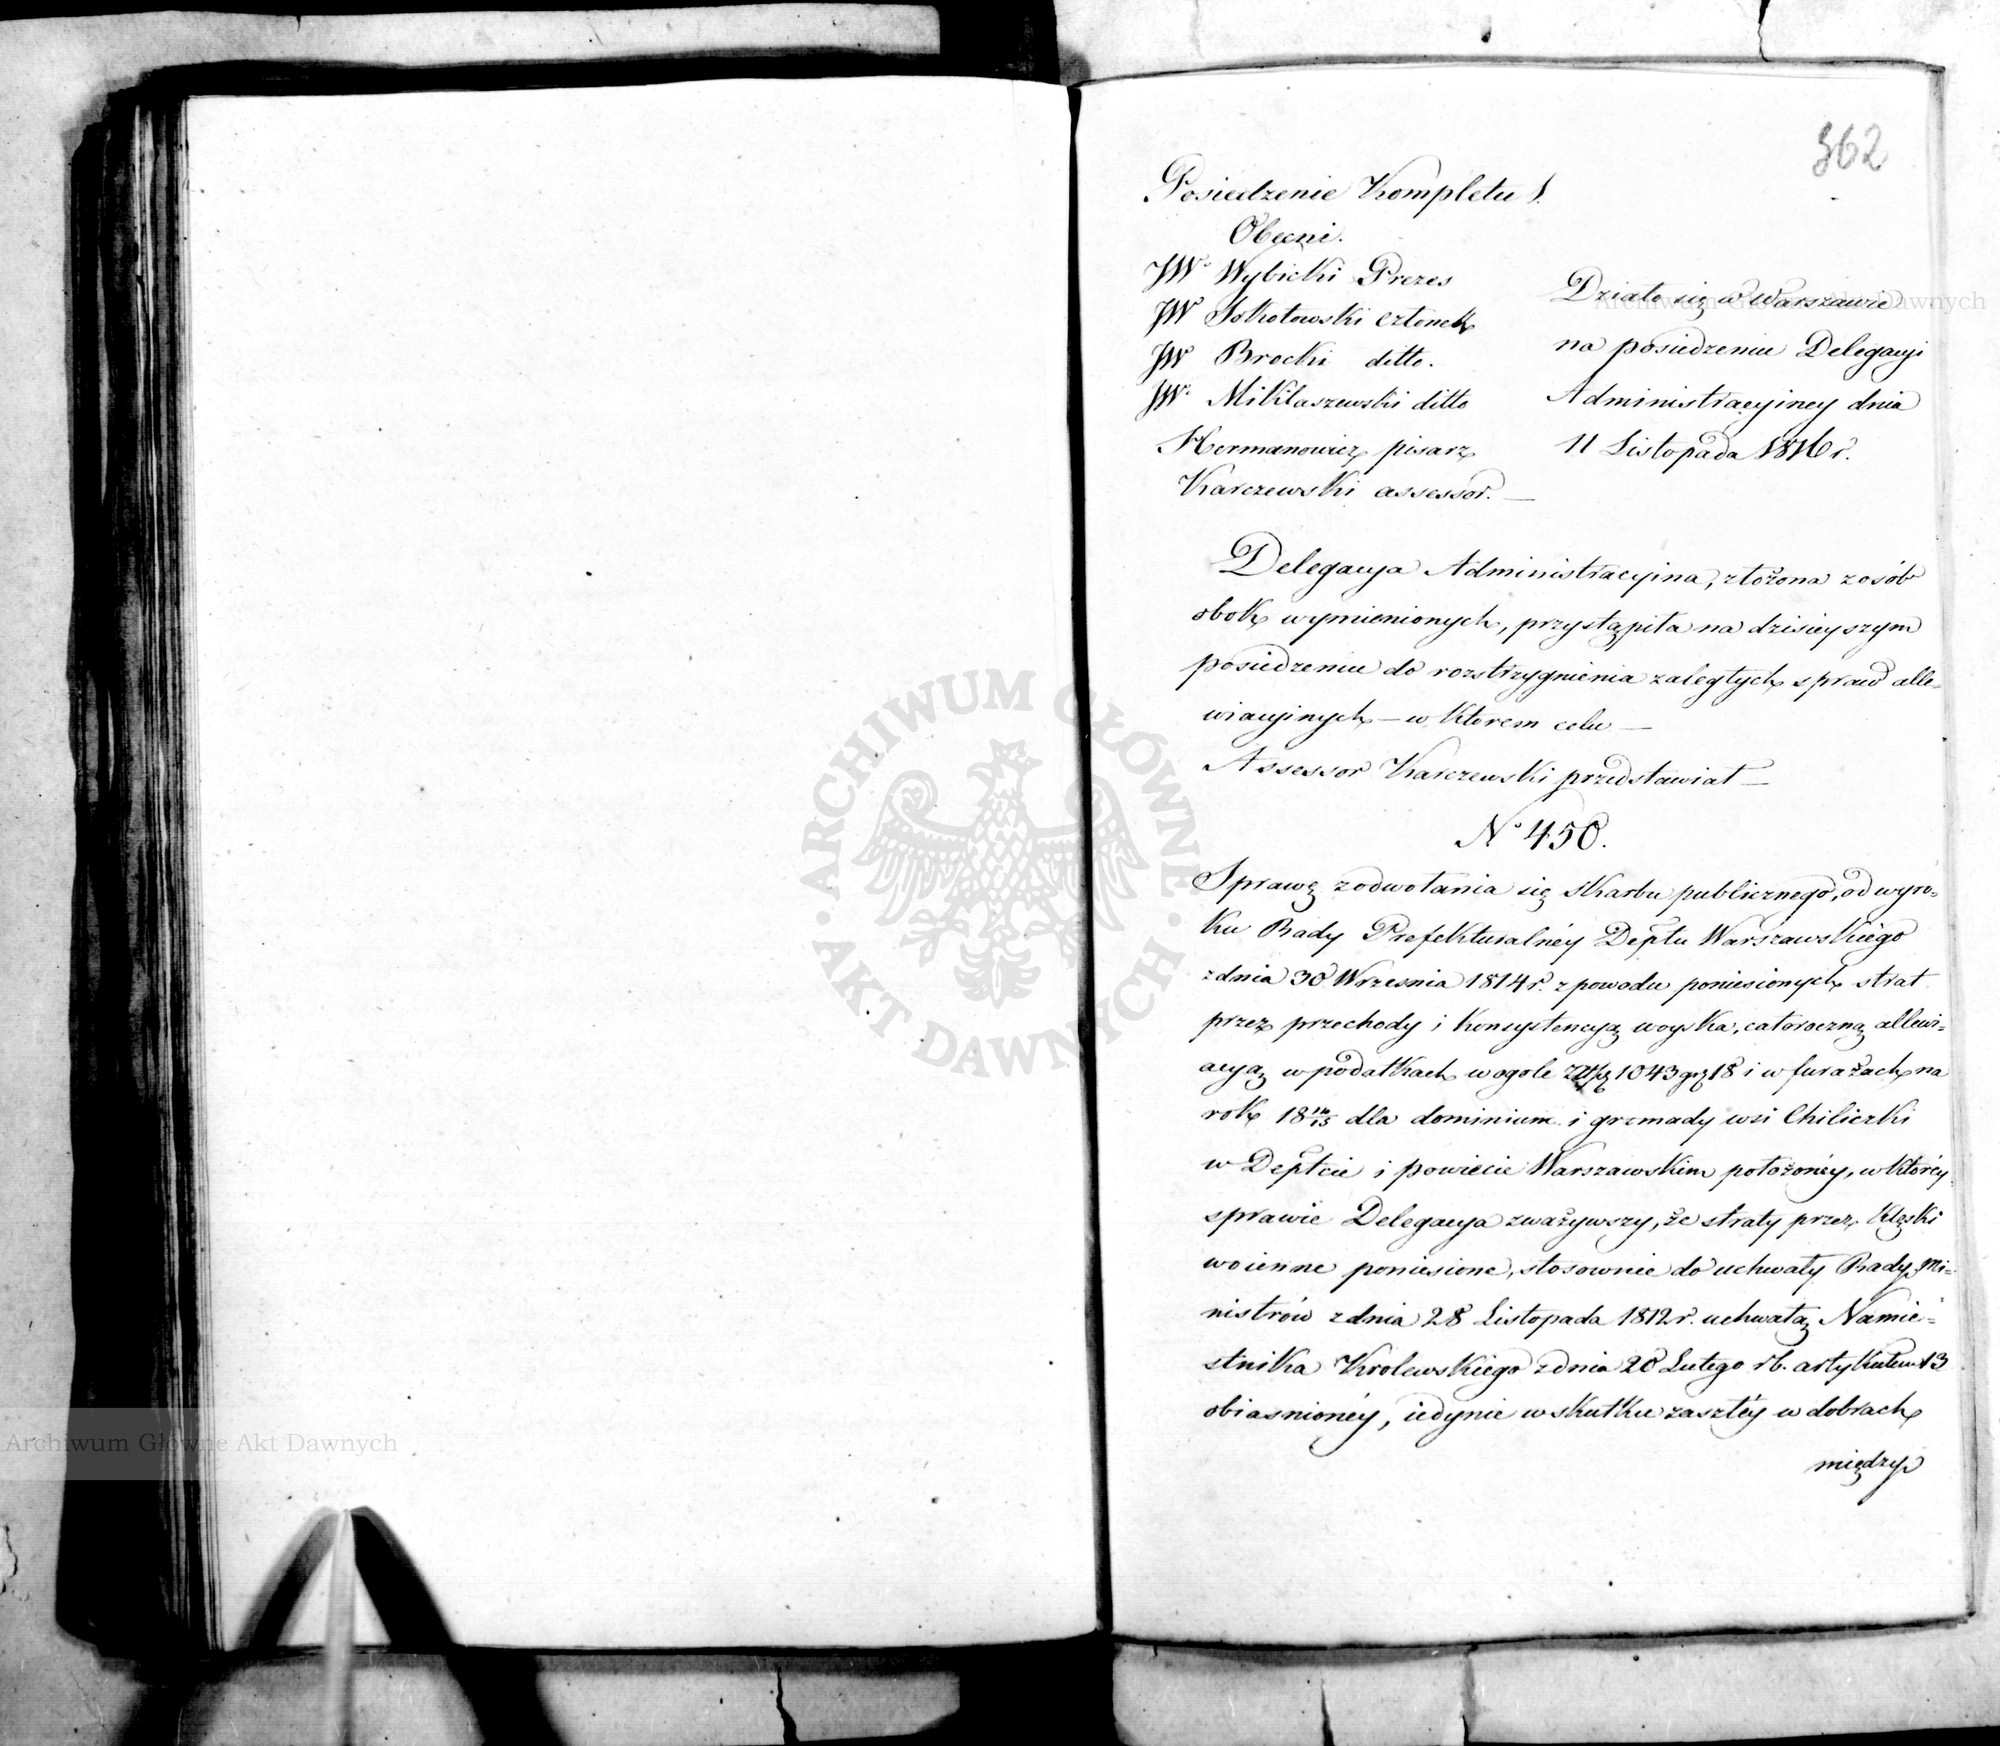 362
Posiedzenie Kompletu I.
Obecni.
JW. Wybicki Prezes
JW Sokołowski członek
JW Brocki ditto.
JW. Miklaszewski ditto
Hermanowicz pisarz
Karczewski assessor. —
Działo się w Warszawie
na posiedzeniu Delegacyi
Administracyiney dnia
11 Listopada 1816 r.
Delegacya Administracyina, złożona z osób
obok wymienionych, przystąpiła na dzisieyszym
posiedzeniu do rozstrzygnienia zaległych spraw alle-
wiacyinych — w ktorem celu —
Assessor Karczewski przedstawiał —
No 450.
Sprawę z odwołania się skarbu publicznego, od wyro-
ku Rady Prefekturalnéy Deptu Warszawskiégo
z dnia 30 Wrzesnia 1814 r. z powodu poniesionych strat
przez przechody i konsystencyą woyska, całoroczną allewi-
acyą w podatkach w ogole Złp 1043 gr 18 i w furażach na
rok 18 14/15 dla dominium i gromady wsi Chiliczki
w Deptcie i powiecie Warszawskim położonéy, w któréy
sprawie Delegacya zważywszy, że straty przez klęski
woienne poniesione, stosownie do uchwały Rady Mi-
nistrów z dnia 28 Listopada 1812 r. uchwałą Namie-
stnika Krolewskiego z dnia 20 Lutego rb. artykułem 13
obiasnionéy, iedynie w skutku zaszłéy w dobrach
między
Archiwum Główne Akt Dawnych
Archiwum Główne Akt Dawnych
ARCHIWUM GŁÓWNE · AKT DAWNYCH ·